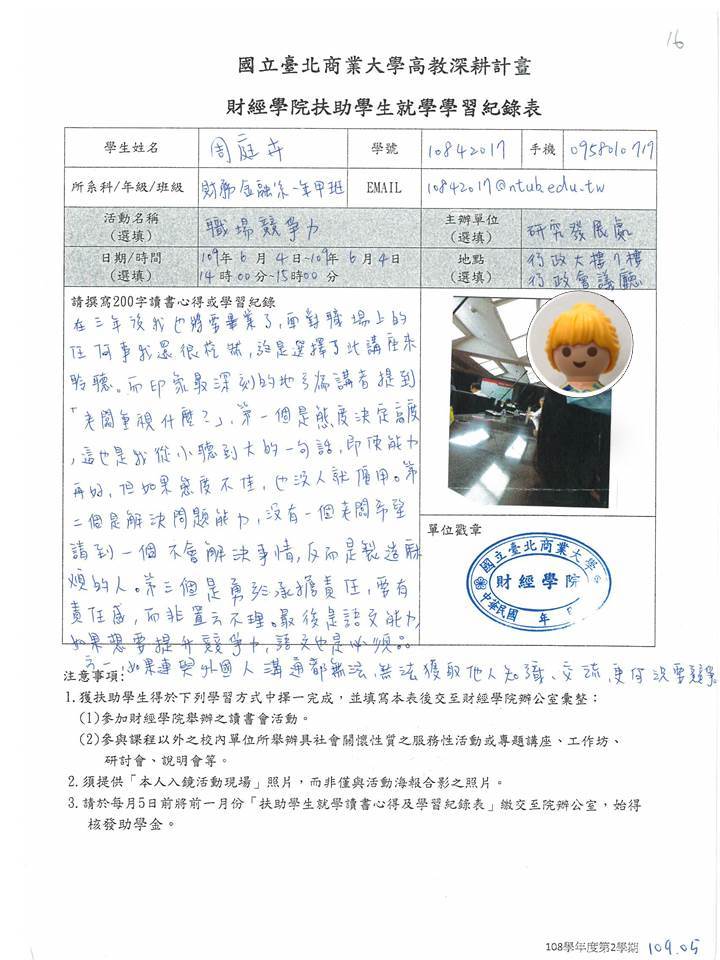 16
國立臺北商業大學高教深耕計畫
財經學院扶助學生就學學習紀錄表
學生姓名 周庭卉 學號 10842017 手機 0958010717
所系科/年級/班級 財務金融系一年甲班 EMAIL 10842017@ntub.edu.tw
活動名稱(選填) 職場競爭力 主辦單位(選填) 研究發展處
日期/時間(選填) 109年6月4日~109年6月4日 14時00分~15時00分 地點(選填) 行政大樓7樓 行政會議廳
請撰寫200字讀書心得或學習紀錄
在三年後我也將要畢業了,面對職場上的
任何事我還很茫然,於是選擇了此講座來
聆聽。而印象最深刻的地方為講者提到
「老闆重視什麼?」,第一個是態度決定高度
,這也是我從小聽到大的一句話,即使能力
再好,但如果態度不佳,也沒人就僱用。第
二個是解決問題能力,沒有一個老闆希望
請到一個不會解決事情,反而是製造麻
煩的人。第三個是勇於承擔責任,要有
責任感,而非置之不理。最後是語文能力,
如果想要提升競爭力,語文也是必須品
之一,如果連與外國人溝通都無法,無法獲取他人知識、交流,更何況要競爭
單位戳章
國立臺北商業大學
財經學院
中華民國 年
注意事項:
1.獲扶助學生得於下列學習方式中擇一完成,並填寫本表後交至財經學院辦公室彙整:
(1)參加財經學院舉辦之讀書會活動。
(2)參與課程以外之校內單位所舉辦具社會關懷性質之服務性活動或專題講座、工作坊、
研討會、說明會等。
2.須提供「本人入鏡活動現場」照片,而非僅與活動海報合影之照片。
3.請於每月5日前將前一月份「扶助學生就學讀書心得及學習紀錄表」繳交至院辦公室,始得
核發助學金。
108學年度第2學期 109.05